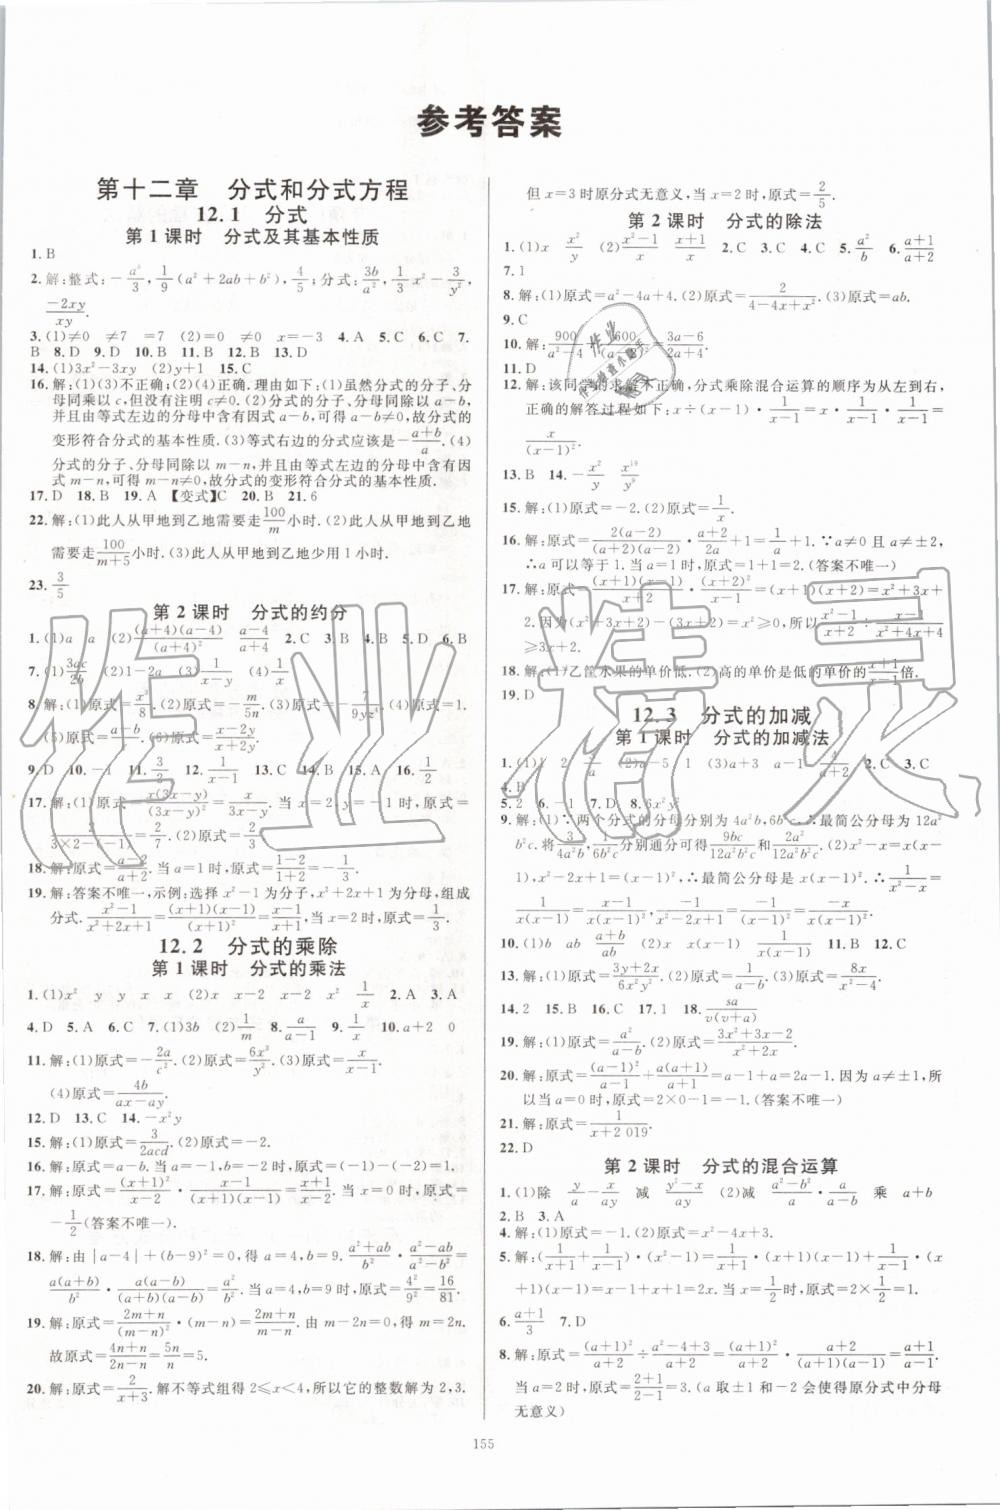 参考答案
第十二章 分式和分式方程
12.1 分式
第1课时 分式及其基本性质
1.B
2.解:整式:-a³/3,1/9(a²+2ab+b²),4/5;分式:3b/a²,1/3x²-3/y²,
-2xy/xy.
3.(1)≠0 ≠7 =7 (2)=0 ≠0 x=-3 4.A 5.C 6.C 7.
B 8.D 9.D 10.B 11.B 12.B 13.D
14.(1)3x²-3xy (2)y+1 15.C
16.解:(1)(3)不正确;(2)(4)正确.理由如下:(1)虽然分式的分子、分
母同乘以c,但没有注明c≠0.(2)分式的分子、分母同除以a-b,
并且由于等式左边的分母中含有因式a-b,可得a-b≠0,故分式的
变形符合分式的基本性质.(3)等式右边的分式应该是-(a+b)/a.(4)
分式的分子、分母同除以m-n,并且由于等式左边的分母中含有因
式m-n,可得m-n≠0,故分式的变形符合分式的基本性质.
17.D 18.B 19.A 【变式】C 20.B 21.6
22.解:(1)此人从甲地到乙地需要走100/m小时.(2)此人从甲地到乙地
需要走100/(m+5)小时.(3)此人从甲地到乙地少用1小时.
23.3/5
第2课时 分式的约分
1.(1)a a (2)(a+4)(a-4)/(a+4)² (a-4)/(a+4) 2.C 3.B 4.D 5.D 6.B
7.(1)3ac/2b (2)1-2a (3)1/(x-y) (4)x/(x-1)
8.解:(1)原式=x³/8.(2)原式=-m/5n.(3)原式=-7/9yz⁴.(4)原式=1.
(5)原式=(a-b)/b.(6)原式=(x-2y)/(x+2y).
9.D 10.-1 11.3/2 12.1/(x-1) 13.C 14.B 15.A 16.1/2
17.解:(1)原式=x(3x-y)/(3x-y)²=x/(3x-y).当x=2,y=-1时,原式=
2/(3×2-(-1))=2/7.(2)原式=3/2.
18.解:原式=(a-2)/(a+2).当a=1时,原式=(1-2)/(1+2)=-1/3.
19.解:答案不唯一,示例:选择x²-1为分子,x²+2x+1为分母,组成
分式.(x²-1)/(x²+2x+1)=(x+1)(x-1)/(x+1)²=(x-1)/(x+1),当x=2时,原式=1/3.
12.2 分式的乘除
第1课时 分式的乘法
1.(1)x² y y x x (2)x x-2 x-2 x² 1/x 2.A 3.A
4.D 5.A 6.C 7.(1)3b (2)1/m 8.a/(a-1) 9.1/x 10.a+2 0
11.解:(1)原式=-2a/c².(2)原式=6x³/y².(3)原式=1/(x-1).
(4)原式=4b/(ax-ay).
12.D 13.C 14.-x²y
15.解:(1)原式=3/2acd.(2)原式=-2.
16.解:原式=a-b.当a=-1,b=-2时,原式=-1-(-2)=1.
17.解:原式=(x+1)²/(x-2)·(x-1)/(x+1)(x-1)=(x+1)/(x-2).当x=0时,原式=
-1/2(答案不唯一)
18.解:由|a-4|+(b-9)²=0,得a=4,b=9.(a²+ab)/b²·(a²-ab)/(a²-b²)=
a(a+b)/b²·a(a-b)/(a+b)(a-b)=a²/b².当a=4,b=9时,原式=4²/9²=16/81.
19.解:原式=(2m+n)/(m-n)²·(m-n)=(2m+n)/(m-n).由m-2n=0,得m=2n.
故原式=(4n+n)/(2n-n)=5n/n=5.
20.解:原式=2/(x+3).解不等式组得2≤x<4,所以它的整数解为2,3.
但x=3时原分式无意义,当x=2时,原式=2/5.
第2课时 分式的除法
1.(1)x x²/y (2)(x²-1)/x (x+1)/x 2.C 3.C 4.C 5.a²/b 6.(a+1)/(a+2)
7.1
8.解:(1)原式=a²-4a+4.(2)原式=2/(4-4x+x²).(3)原式=ab.
9.C
10.解:900/(a²-4)÷600/(a-2)²=(3a-6)/(2a+4).
11.D
12.解:该同学的求解不正确,分式乘除混合运算的顺序为从左到右,
正确的解答过程如下:x÷(x-1)·1/(x-1)=x·1/(x-1)·1/(x-1)=
x/(x-1)².
13.B 14.-x²/y x¹⁹/y⁹
15.解:(1)原式=a.(2)原式=1/x.
16.解:原式=2(a-2)/(a+2)(a-2)·(a+2)/2a+1=1/a+1.∵a≠0且a≠±2,
∴a可以等于1.当a=1时,原式=1+1=2.(答案不唯一)
17.解:原式=(x+1)(x-1)/(x+2)·(x+2)/(x-1)·(x+1)=(x+1)²
18.解:(1)乙筐水果的单价低.(2)高的单价是低的单价的(x+1)/(x-1)倍.
19.D
12.3 分式的加减
第1课时 分式的加减法
5.2 6.-1 7.D 8.6x²y²
9.解:(1)∵两个分式的分母分别为4a²b,6b²c,∴最简公分母为12a²
b²c.3/4a²b,1/6b²c分别通分可得9bc/12a²b²c和2a²/12a²b²c.(2)∵x²-x=x(x-
1),x²-2x+1=(x-1)²,∴最简公分母是x(x-1)².∴1/(x²-x)=
1/x(x-1)=(x-1)/x(x-1)²,x/(x²-2x+1)=x/(x-1)²=x²/x(x-1)².
10.(1)b ab (a+b)/ab (2)x x-1 1/x(x-1) 11.B 12.C
13.解:(1)原式=(3y+2x)/6x²y².(2)原式=1/(a-b).(3)原式=8x/(x²-4).
14.2 15.B 16.C 17.1 18.sa/v(v+a)
19.解:(1)原式=a²/(a-b).(2)原式=(3x²+3x-2)/(3x²-3x).
20.解:原式=(a-1)²/(a-1)+a(a+1)/(a+1)=a-1+a=2a-1.因为a≠±1,所
以当a=0时,原式=2×0-1=-1.(答案不唯一)
21.解:原式=1/(x+2 019).
22.D
第2课时 分式的混合运算
1.(1)除 y/a-x/ay 减 (y²-x)/ay (2)减 (a²-b²)/a·a/(a-b) 乘 a+b
2.B 3.A
4.解:(1)原式=-1.(2)原式=x²-4x+3.
5.解:(1/(x+1)+1/(x-1))·(x²-1)=1/(x+1)·(x+1)(x-1)+1/(x-1)·(x
+1)(x-1)=x-1+x+1=2x.当x=1/2时,原式=2×1/2=1.
6.(a+1)/3 7.D
8.解:原式=(a+1)²/(a+2)÷(a²-4+3)/(a+2)=(a+1)²/(a+2)·(a+2)/(a+1)(a-1)=(a+1)/(a-1).
当a=2时,原式=(2+1)/(2-1)=3.(a取±1和-2会使得原分式中分母
无意义)
155
作业精灵